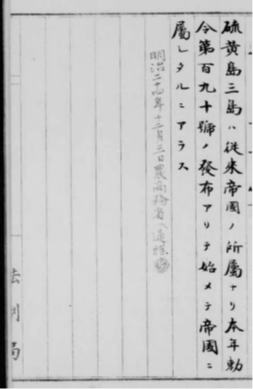 硫黄島三島ハ従来帝国ノ所属ナリ本年勅
令第百九十號ノ發布アリテ始メテ帝国ニ
属シタルニアラス
明治二十四年十二月三日農商務省ヘ通牒
法制局